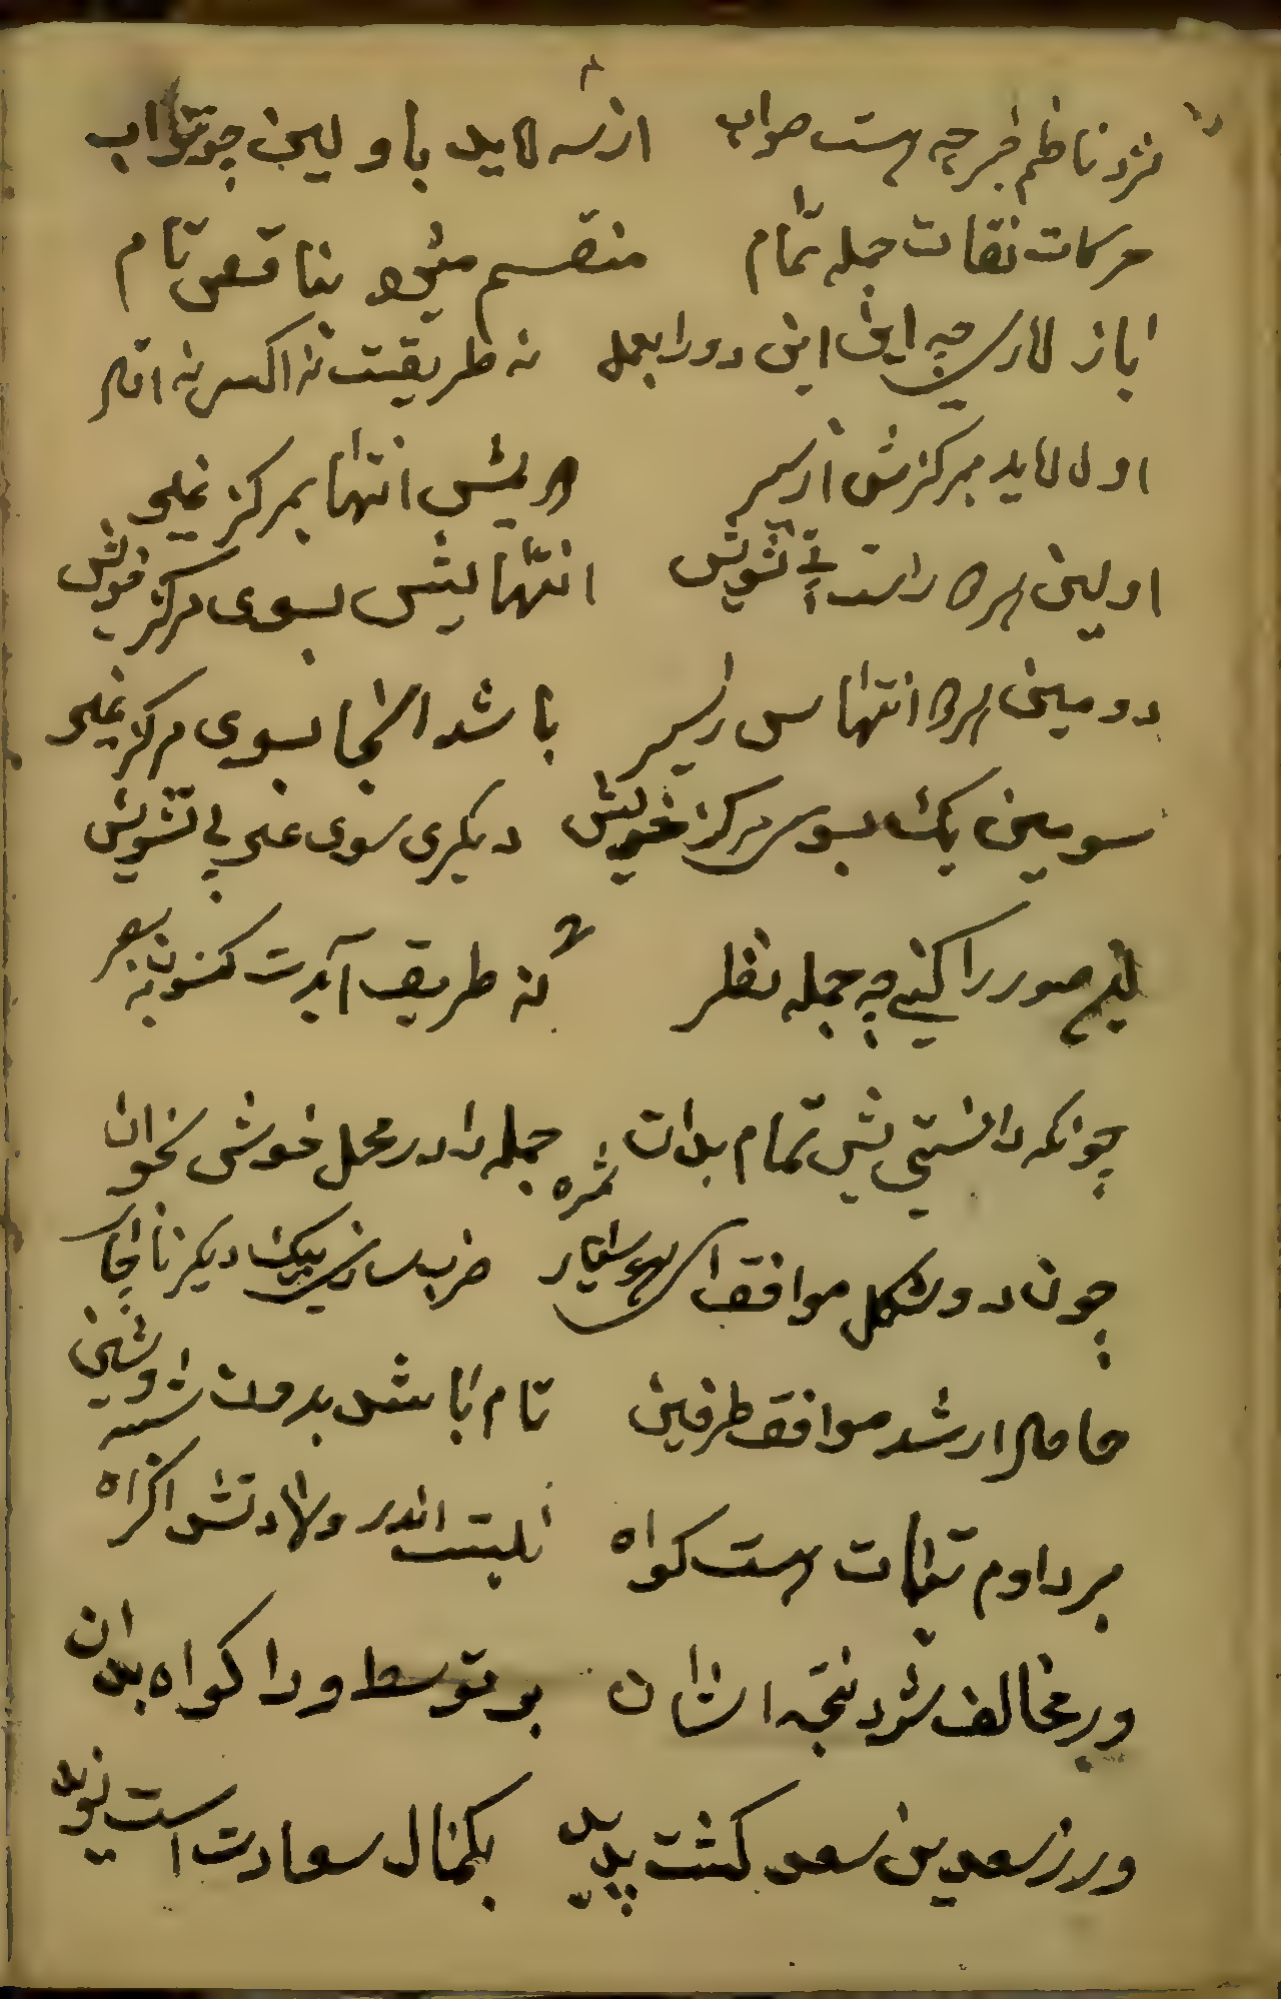 نزد ناظم خبر چه هست صواب از سه لابد باولین چو شتاب
حرکات نقات جمله تمام منقسم میشود بناقص تام
باز لارس چه این این دو را بعمل نه طریقت نه اکسر نه اقل
اول لابد بمرکزش از سر انتها بمرکز غیر
اولین بهره راست بی تشویش انتهایش بسوی مرکز خویش
دومین بهره انتهاس ز سر باشد انجا بسوی مرکز غیر
سومین یک بسوی مرکز خویش دیکری سوی غیر بی تشویش
این صور را کنی چه جمله نظر نه طریق آیدت کنون بنظر
چونکه دانستی تمام بدان ثمره جمله را در محل خوشی بخوان
چون دو شکل موافق ای هوشیار ضرب سازی بیک دیکر ناچار
حاصل ار شد موافق طرفین تام باشد بدون شبه و شین
بر دوام ثبات هست کواه نیست اندر ولادتش اکراه
ور مخالف شد نتیجه ایشان بر توسط ورا کواه بدان
ور ز سعدین سعد کشت پدید بکمال سعادت است نوید